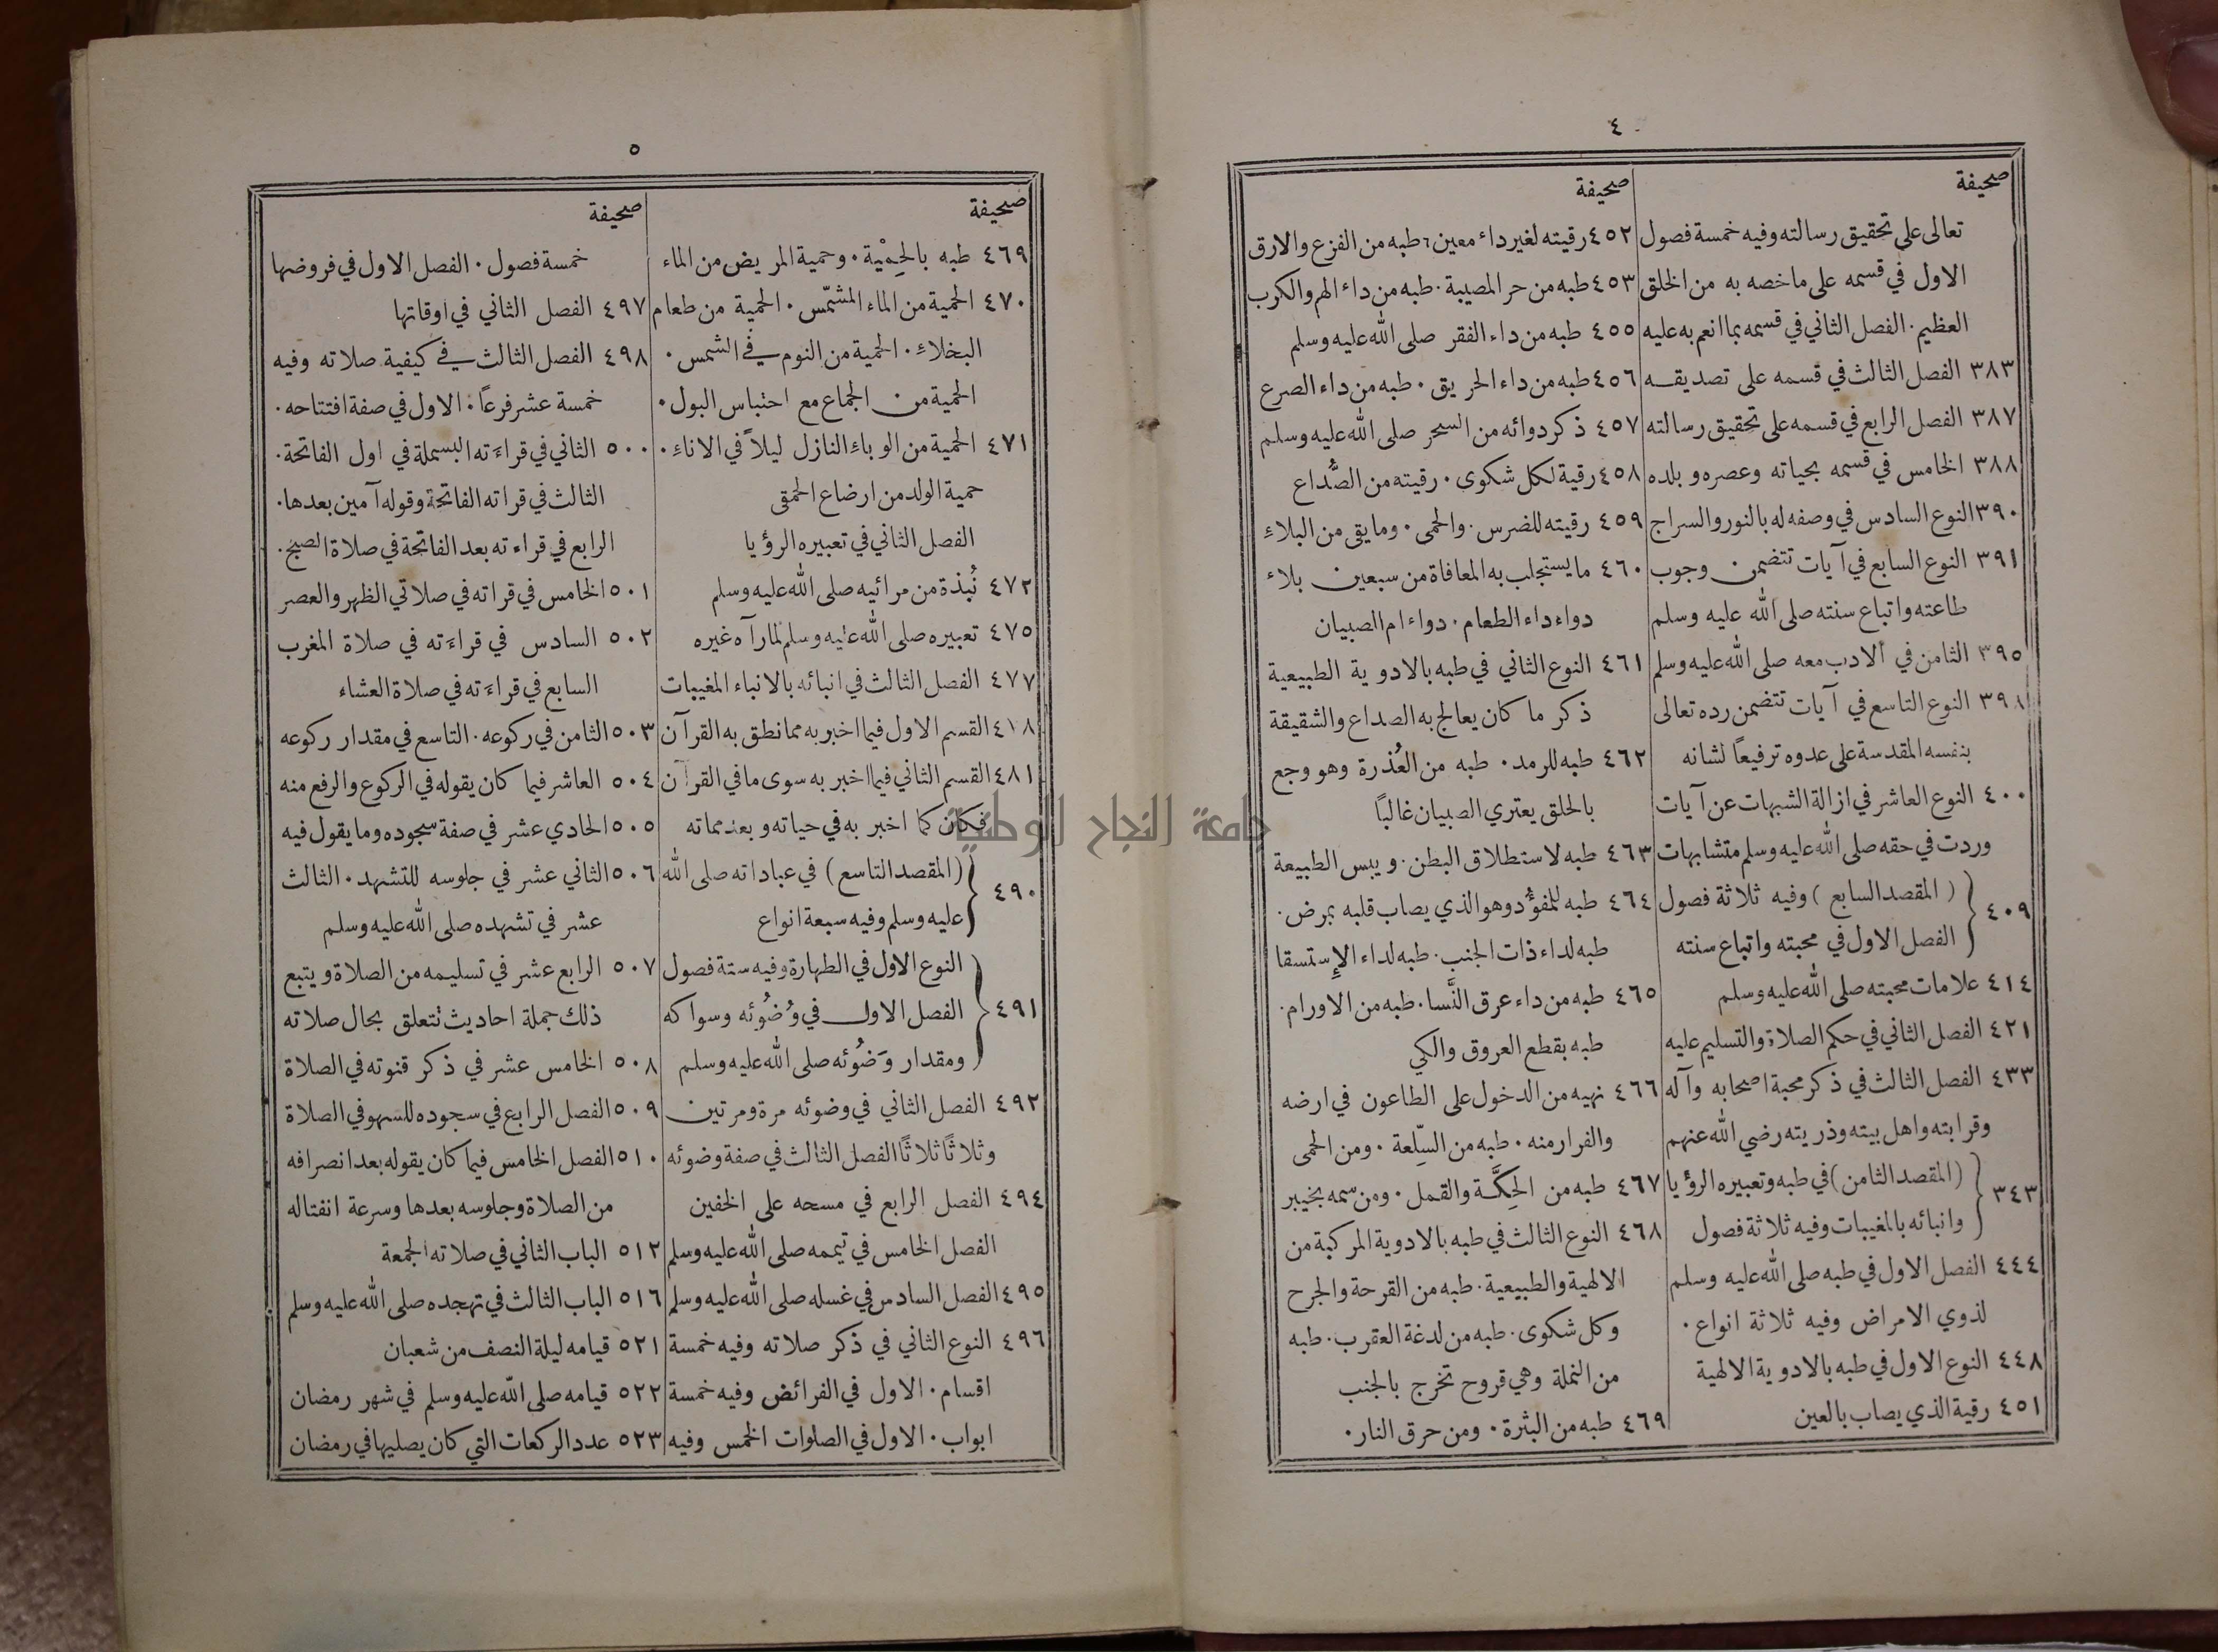 ٤
صحيفة
تعالى على تحقيق رسالته وفيه خمسة فصول
الاول في قسمه على ما خصه به من الخلق
العظيم · الفصل الثاني في قسمه بما انعم به عليه
٣٨٣ الفصل الثالث في قسمه على تصديقـه
٣٨٧ الفصل الرابع في قسمه على تحقيق رسالته
٣٨٨ الخامس في قسمه بحياته وعصره وبلده
٣٩٠ النوع السادس في وصفه له بالنور والسراج
٣٩١ النوع السابع في آيات تتضمن وجوب
طاعته واتباع سنته صلى الله عليه وسلم
٣٩٥ الثامن في الادب معه صلى الله عليه وسلم
٣٩٨ النوع التاسع في آيات تتضمن رده تعالى
بنفسه المقدسة على عدوه ترفيعاً لشانه
٤٠٠ النوع العاشر في ازالة الشبهات عن آيات
وردت في حقه صلى الله عليه وسلم متشابهات
٤٠٩ (المقصد السابع) وفيه ثلاثة فصول
الفصل الاول في محبته واتباع سنته
٤١٤ علامات محبته صلى الله عليه وسلم
٤٢١ الفصل الثاني في حكم الصلاة والتسليم عليه
٤٣٣ الفصل الثالث في ذكر محبة اصحابه وآله
وقرابته واهل بيته وذريته رضي الله عنهم
٣٤٣ (المقصد الثامن) في طبه وتعبيره الرؤيا
وانبائه بالمغيبات وفيه ثلاثة فصول
٤٤٤ الفصل الاول في طبه صلى الله عليه وسلم
لذوي الامراض وفيه ثلاثة انواع ·
٤٤٨ النوع الاول في طبه بالادوية الالهية
٤٥١ رقية الذي يصاب بالعين
صحيفة
٤٥٢ رقيته لغير داء معين ٦ طبه من الفزع والارق
٤٥٣ طبه من حر المصيبة · طبه من داء الهم والكرب
٤٥٥ طبه من داء الفقر صلى الله عليه وسلم
٤٥٦ طبه من داء الحريق · طبه من داء الصرع
٤٥٧ ذكر دوائه من السحر صلى الله عليه وسلم
٤٥٨ رقية لكل شكوى · رقيته من الصُّداع
٤٥٩ رقيته للضرس · والحمى · وما يقي من البلاء
٤٦٠ ما يستجلب به المعافاة من سبعين بلاء
دواء داء الطعام · دواء ام الصبيان
٤٦١ النوع الثاني في طبه بالادوية الطبيعية
ذكر ما كان يعالج به الصداع والشقيقة
٤٦٢ طبه للرمد · طبه من العُذرة وهو وجع
بالحلق يعتري الصبيان غالبًا
٤٦٣ طبه لاستطلاق البطن · ويبس الطبيعة
٤٦٤ طبه للمفؤُد وهو الذي يصاب قلبه بمرض ·
طبه لداء ذات الجنب · طبه لداء الإستسقا
٤٦٥ طبه من داء عرق النَّسا · طبه من الاورام ·
طبه بقطع العروق والكي
٤٦٦ نهيه من الدخول على الطاعون في ارضه
والفرار منه · طبه من السِّلعة · ومن الحمى
٤٦٧ طبه من الحِكَّة والقمل · ومن سمه بخيبر
٤٦٨ النوع الثالث في طبه بالادوية المركبة من
الالهية والطبيعية · طبه من القرحة والجرح
وكل شكوى · طبه من لدغة العقرب · طبه
من النملة وهي قروح تخرج بالجنب
٤٦٩ طبه من البثرة · ومن حرق النار ·
٥
صحيفة
٤٦٩ طبه بالحِمْية · وحمية المريض من الماء
٤٧٠ الحمية من الماء المشمّس · الحمية من طعام
البخلاء · الحمية من النوم في الشمس ·
الحمية من الجماع مع احتباس البول ·
٤٧١ الحمية من الوباء النازل ليلاً في الاناء ·
حمية الولد من ارضاع الحمقى
الفصل الثاني في تعبيره الرؤيا
٤٧٢ نُبذة من مرائيه صلى الله عليه وسلم
٤٧٥ تعبيره صلى الله عليه وسلم لما رآه غيره
٤٧٧ الفصل الثالث في انبائه بالانباء المغيبات
٤١٨ القسم الاول فيما اخبر به مما نطق به القرآن
٤٨١ القسم الثاني فيما اخبر به سوى ما في القرآن
فكان كما اخبر به في حياته وبعد مماته
٤٩٠ (المقصد التاسع) في عباداته صلى الله
عليه وسلم وفيه سبعة انواع
النوع الاول في الطهارة وفيه ستة فصول
٤٩١ الفصل الاول في وُضُوئه وسواكه
ومقدار وَضُوئه صلى الله عليه وسلم
٤٩٢ الفصل الثاني في وضوئه مرة ومرتين
وثلاثًا ثلاثًا الفصل الثالث في صفة وضوئه
٤٩٤ الفصل الرابع في مسحه على الخفين
الفصل الخامس في تيممه صلى الله عليه وسلم
٤٩٥ الفصل السادس في غسله صلى الله عليه وسلم
٤٩٦ النوع الثاني في ذكر صلاته وفيه خمسة
اقسام · الاول في الفرائض وفيه خمسة
ابواب · الاول في الصلوات الخمس وفيه
صحيفة
خمسة فصول · الفصل الاول في فروضها
٤٩٧ الفصل الثاني في اوقاتها
٤٩٨ الفصل الثالث في كيفية صلاته وفيه
خمسة عشر فرعاً · الاول في صفة افتتاحه ·
٥٠٠ الثاني في قراءته البسملة في اول الفاتحة ·
الثالث في قراته الفاتحة وقوله آمين بعدها ·
الرابع في قراءته بعد الفاتحة في صلاة الصبح ·
٥٠١ الخامس في قراته في صلاتي الظهر والعصر
٥٠٢ السادس في قراءته في صلاة المغرب
السابع في قراءته في صلاة العشاء
٥٠٣ الثامن في ركوعه · التاسع في مقدار ركوعه
٥٠٤ العاشر فيما كان يقوله في الركوع والرفع منه
٥٠٥ الحادي عشر في صفة سجوده وما يقول فيه
٥٠٦ الثاني عشر في جلوسه للتشهد · الثالث
عشر في تشهده صلى الله عليه وسلم
٥٠٧ الرابع عشر في تسليمه من الصلاة ويتبع
ذلك جملة احاديث تتعلق بحال صلاته
٥٠٨ الخامس عشر في ذكر قنوته في الصلاة
٥٠٩ الفصل الرابع في سجوده للسهو في الصلاة
٥١٠ الفصل الخامس فيما كان يقوله بعد انصرافه
من الصلاة وجلوسه بعدها وسرعة انفتاله
٥١٢ الباب الثاني في صلاته الجمعة
٥١٦ الباب الثالث في تهجده صلى الله عليه وسلم
٥٢١ قيامه ليلة النصف من شعبان
٥٢٢ قيامه صلى الله عليه وسلم في شهر رمضان
٥٢٣ عدد الركعات التي كان يصليها في رمضان
جامعة النجاح الوطنية